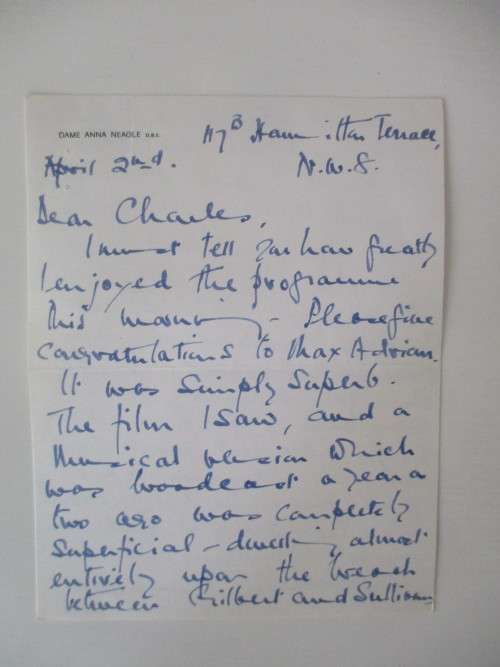 DAME ANNA NEAGLE D.B.E.
117B Hamilton Terrace,
April 2nd. N.W.8.
Dear Charles,
I must tell you how greatly
I enjoyed the programme
this morning - Please give
congratulations to Max Adrian.
It was simply superb.
The film I saw, and a
Musical version which
was broadcast a year or
two ago was completely
superficial - almost
entirely upon the breach
between Gilbert and Sullivan